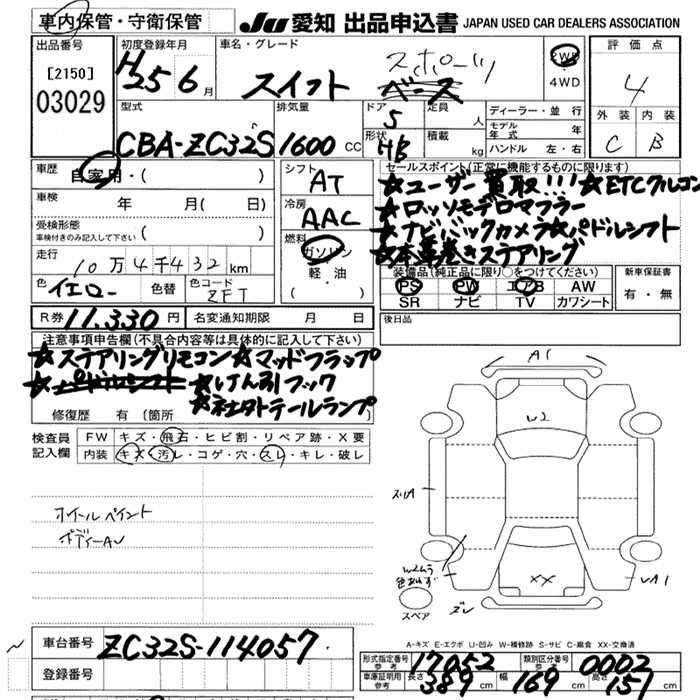 車内保管・守衛保管
JU 愛知 出品申込書 JAPAN USED CAR DEALERS ASSOCIATION
出品番号
[2150]
03029
初度登録年月
H25 6月
車名・グレード
スイフト スポーツ ベース
2WD
・
4WD
評価点
4
外装 内装
C B
型式
CBA-ZC32S
排気量
1600 CC
ドア
5
形状
HB
定員
人
積載
kg
ディーラー・並行
モデル年式 年
ハンドル 左・右
車歴
自家用・( )
車検 年 月( 日)
受検形態
車検付きのみ記入して下さい ( )
走行
10万4千432km
色 イエロー 色替 色コード ZFT
シフト
AT
冷房
AAC
燃料
ガソリン
軽・油
・
( )
セールスポイント(正常に機能するものに限ります)
★ユーザー買取!!!★ETCクルコン
★ロッソモデロマフラー
★ナビバックカメラ★パドルシフト
★本革巻きステアリング
装備品(純正品に限り○をつけてください)
PS PW エアB AW
SR ナビ TV カワシート
新車保証書
有・無
R券 11.330円 名変通知期限 月 日
後日品
注意事項申告欄(不具合内容等は具体的に記入して下さい)
★ステアリングリモコン★マッドフラップ
★パドルシフト ★けん引フック
★社外テールランプ
修復歴 有(箇所 )
検査員記入欄
FW キズ・飛石・ヒビ割・リペア跡・X要
内装 キズ・汚レ・コゲ・穴・スレ・キレ・破レ
ホイールペイント
ボディーAU
A1
U2
ズレA
XX
UA1
色あせず
ズレ
スペア
A-キズ E-エクボ U-凹み W-補修跡 S-サビ C-腐食 XX-交換済
車台番号 ZC32S-114057
登録番号
形式指定番号 参考 17052 類別区分番号 参考 0002
車庫証明用 参考 長さ 389cm 幅 169cm 高さ 151cm